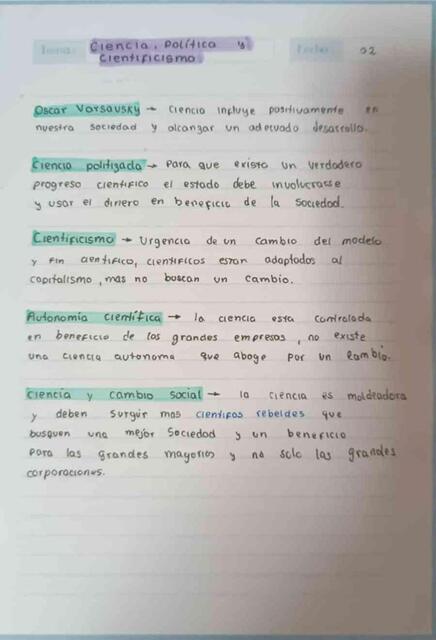 Tema: Ciencia, Política y
Cientificismo
Fecha: 02
Oscar Varsavsky → Ciencia influye positivamente en
nuestra sociedad y alcanzar un adecuado desarrollo.
Ciencia politizada → Para que exista un verdadero
progreso científico el estado debe involucrarse
y usar el dinero en beneficio de la sociedad.
Cientificismo → Urgencia de un cambio del modelo
y fin científico, científicos estan adaptados al
capitalismo, mas no buscan un cambio.
Autonomía científica → la ciencia esta controlada
en beneficio de los grandes empresas, no existe
una ciencia autonoma que aboge por un cambio.
Ciencia y cambio social → la ciencia es moldeadora
y deben surgir mas científos rebeldes que
busquen una mejor sociedad y un beneficio
para las grandes mayorias y no solo las grandes
corporaciones.